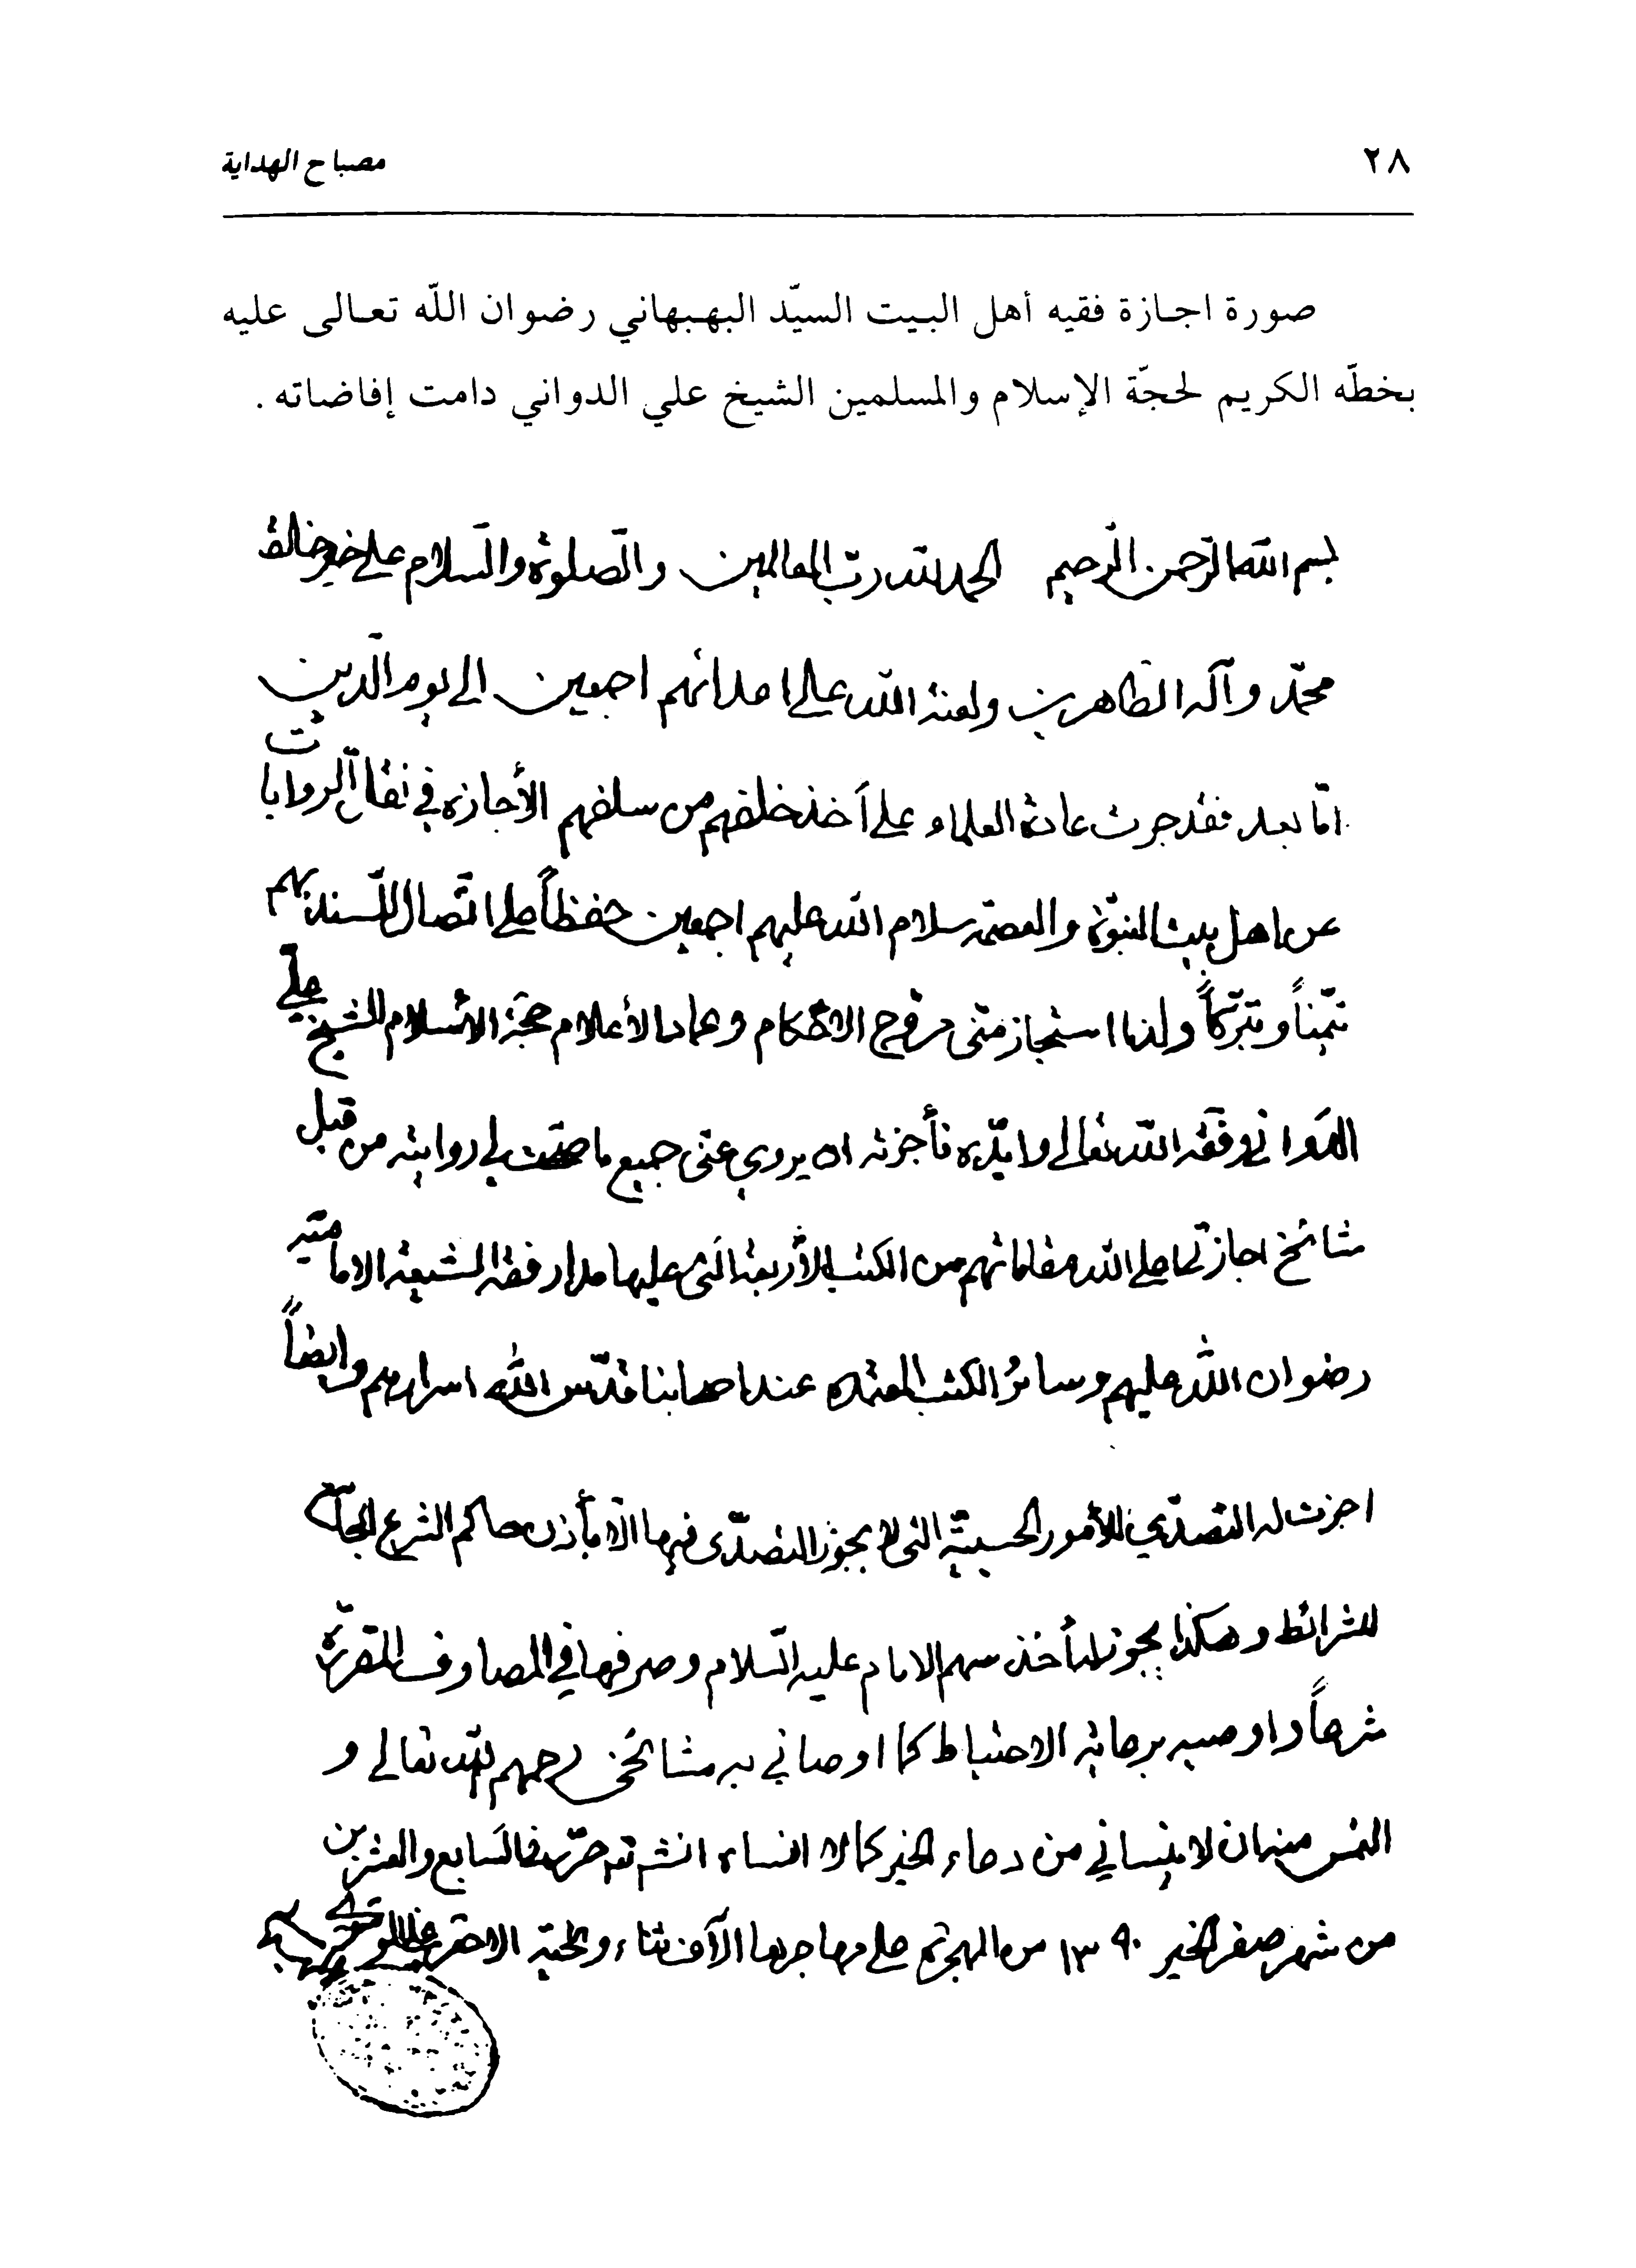 ٢٨
مصباح الهداية
صورة اجازة فقيه أهل البيت السيّد البهبهاني رضوان اللّه تعالى عليه
بخطّه الكريم لحجّة الإسلام والمسلمين الشيخ علي الدواني دامت إفاضاته .
بسم الله الرّحمن الرّحيم الحمد لله ربّ العالمين والصّلوة والسّلام على خير خلقه
محمّد وآله الطّاهرين ولعنة الله على اعدائهم اجمعين الى يوم الدّين
امّا بعد فقد جرت عادة العلماء على أخذ خلفهم من سلفهم الأجازه في نقل الروايات
عن اهل بيت النبوّة والعصمة سلام الله عليهم اجمعين حفظاً على اتّصال السند بهم
تيمّناً وتبرّكاً ولذا استجاز منّى مروّج الاحكام وعماد الأعلام حجّة الاسلام الشيخ علي
الدوانى وفقه الله تعالى وايّده فأجزته ان يروي عنّى جميع ما صحّت لي روايته من قبل
مشائخ اجازتي اعلى الله مقاماتهم من الكتب الأربعة الّتى عليها مدار فقه الشيعة الاماميّة
رضوان الله عليهم وسائر الكتب المعتمده عند اصحابنا قدّس الله اسرارهم وايضاً
اجزت له التصدّي للأمور الحسبيّة التى لا يجوز التصدّى فيها الّا بأذن حاكم الشرع الجامع
للشرائط وهكذا يجوز له أخذ سهم الامام عليه السّلام وصرفها في المصارف المقرّرة
شرعاً واوصيه برعاية الاحتياط كما اوصاني به مشائخى رحمهم الله تعالى و
التمس منه ان لا ينساني من دعاء الخير كما لا انساه انشاء الله حرّر فى السّابع والعشرين
من شهر صفر الخير ١٣٩٠ من الهجرة على مهاجرها الآف ثناء والتحيّة الاحقر على الموسوى